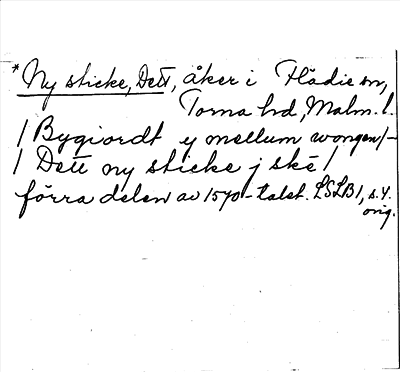 * Ny sticke, Dett, åker i Flädie sn,
Torna hd, Malm. l.
/ Bygiordt ij mellum wongen/-
/ Dett ny sticke j skē /
förra delen av 1570-talet. LSLB 1, s. 4.
orig.